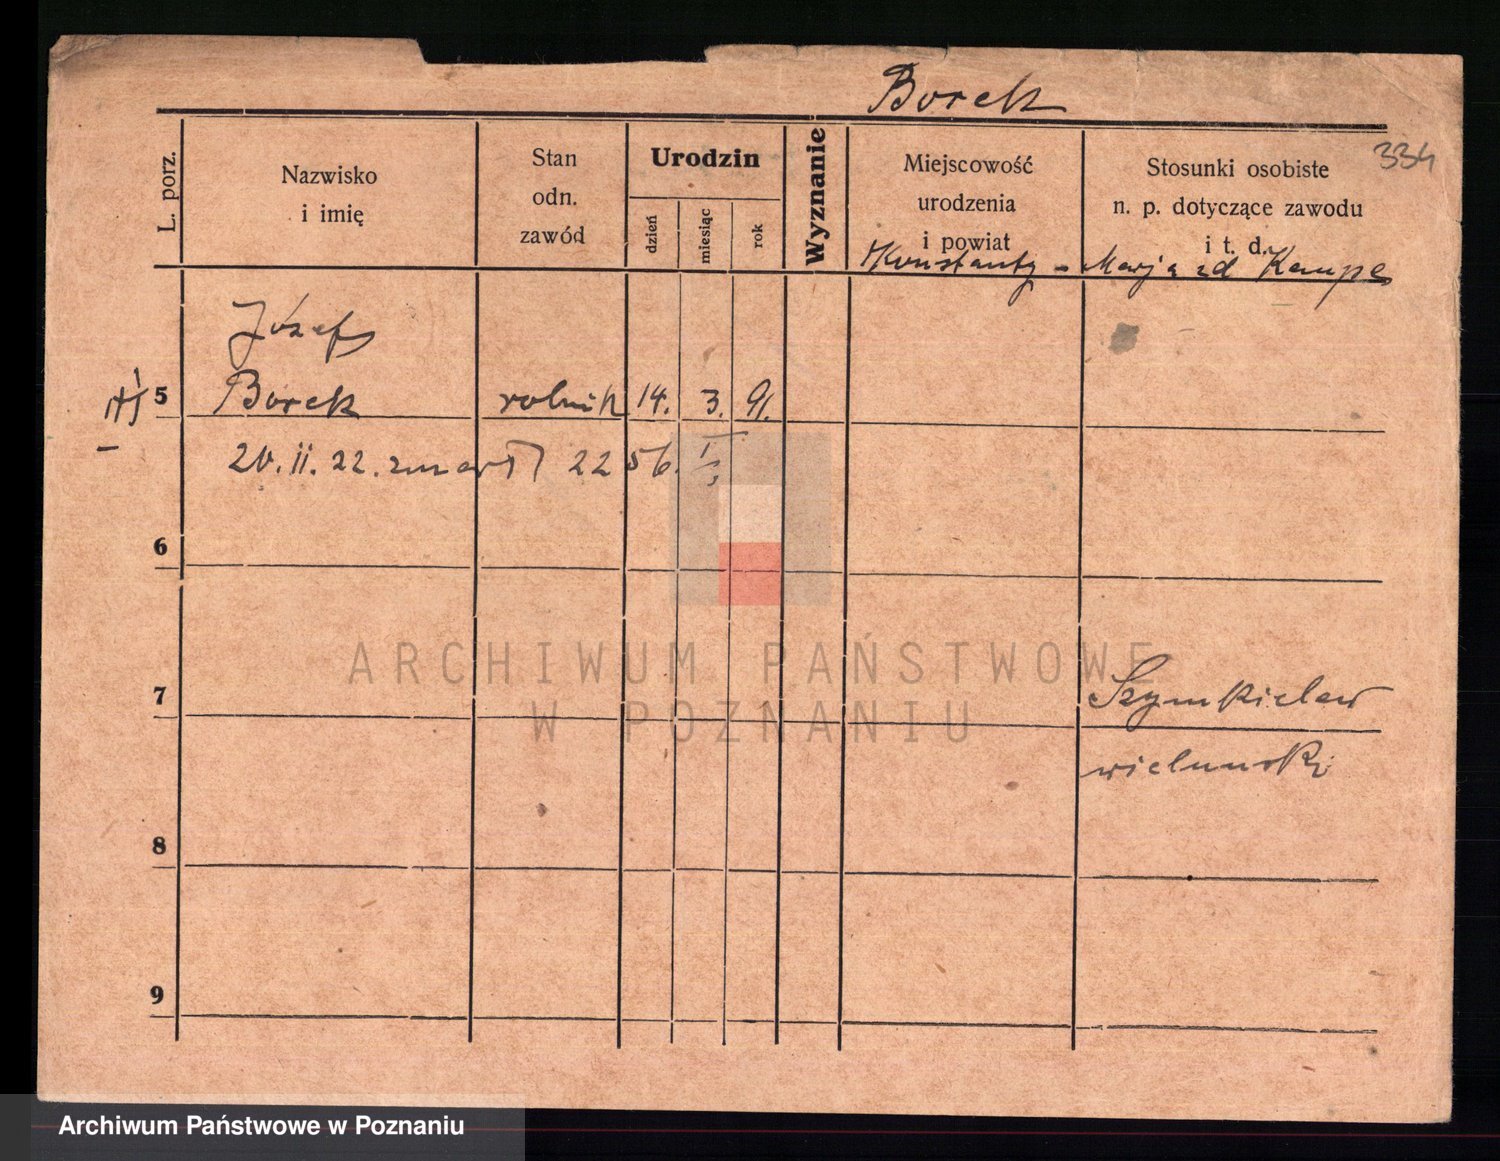 Borek
334
L. porz.
Nazwisko
i imię
Stan
odn.
zawód
Urodzin
dzień
miesiąc
rok
Wyznanie
Miejscowość
urodzenia
i powiat
Stosunki osobiste
n. p. dotyczące zawodu
i t. d.
Konstanty - Marja zd Kempa
Józef
5 Borek rolnik 14. 3. 91.
20. II. 22. zmarł 22 56.
6
ARCHIWUM PAŃSTWOWE
W POZNANIU
7
Szymkielew
wieluński
8
9
Archiwum Państwowe w Poznaniu